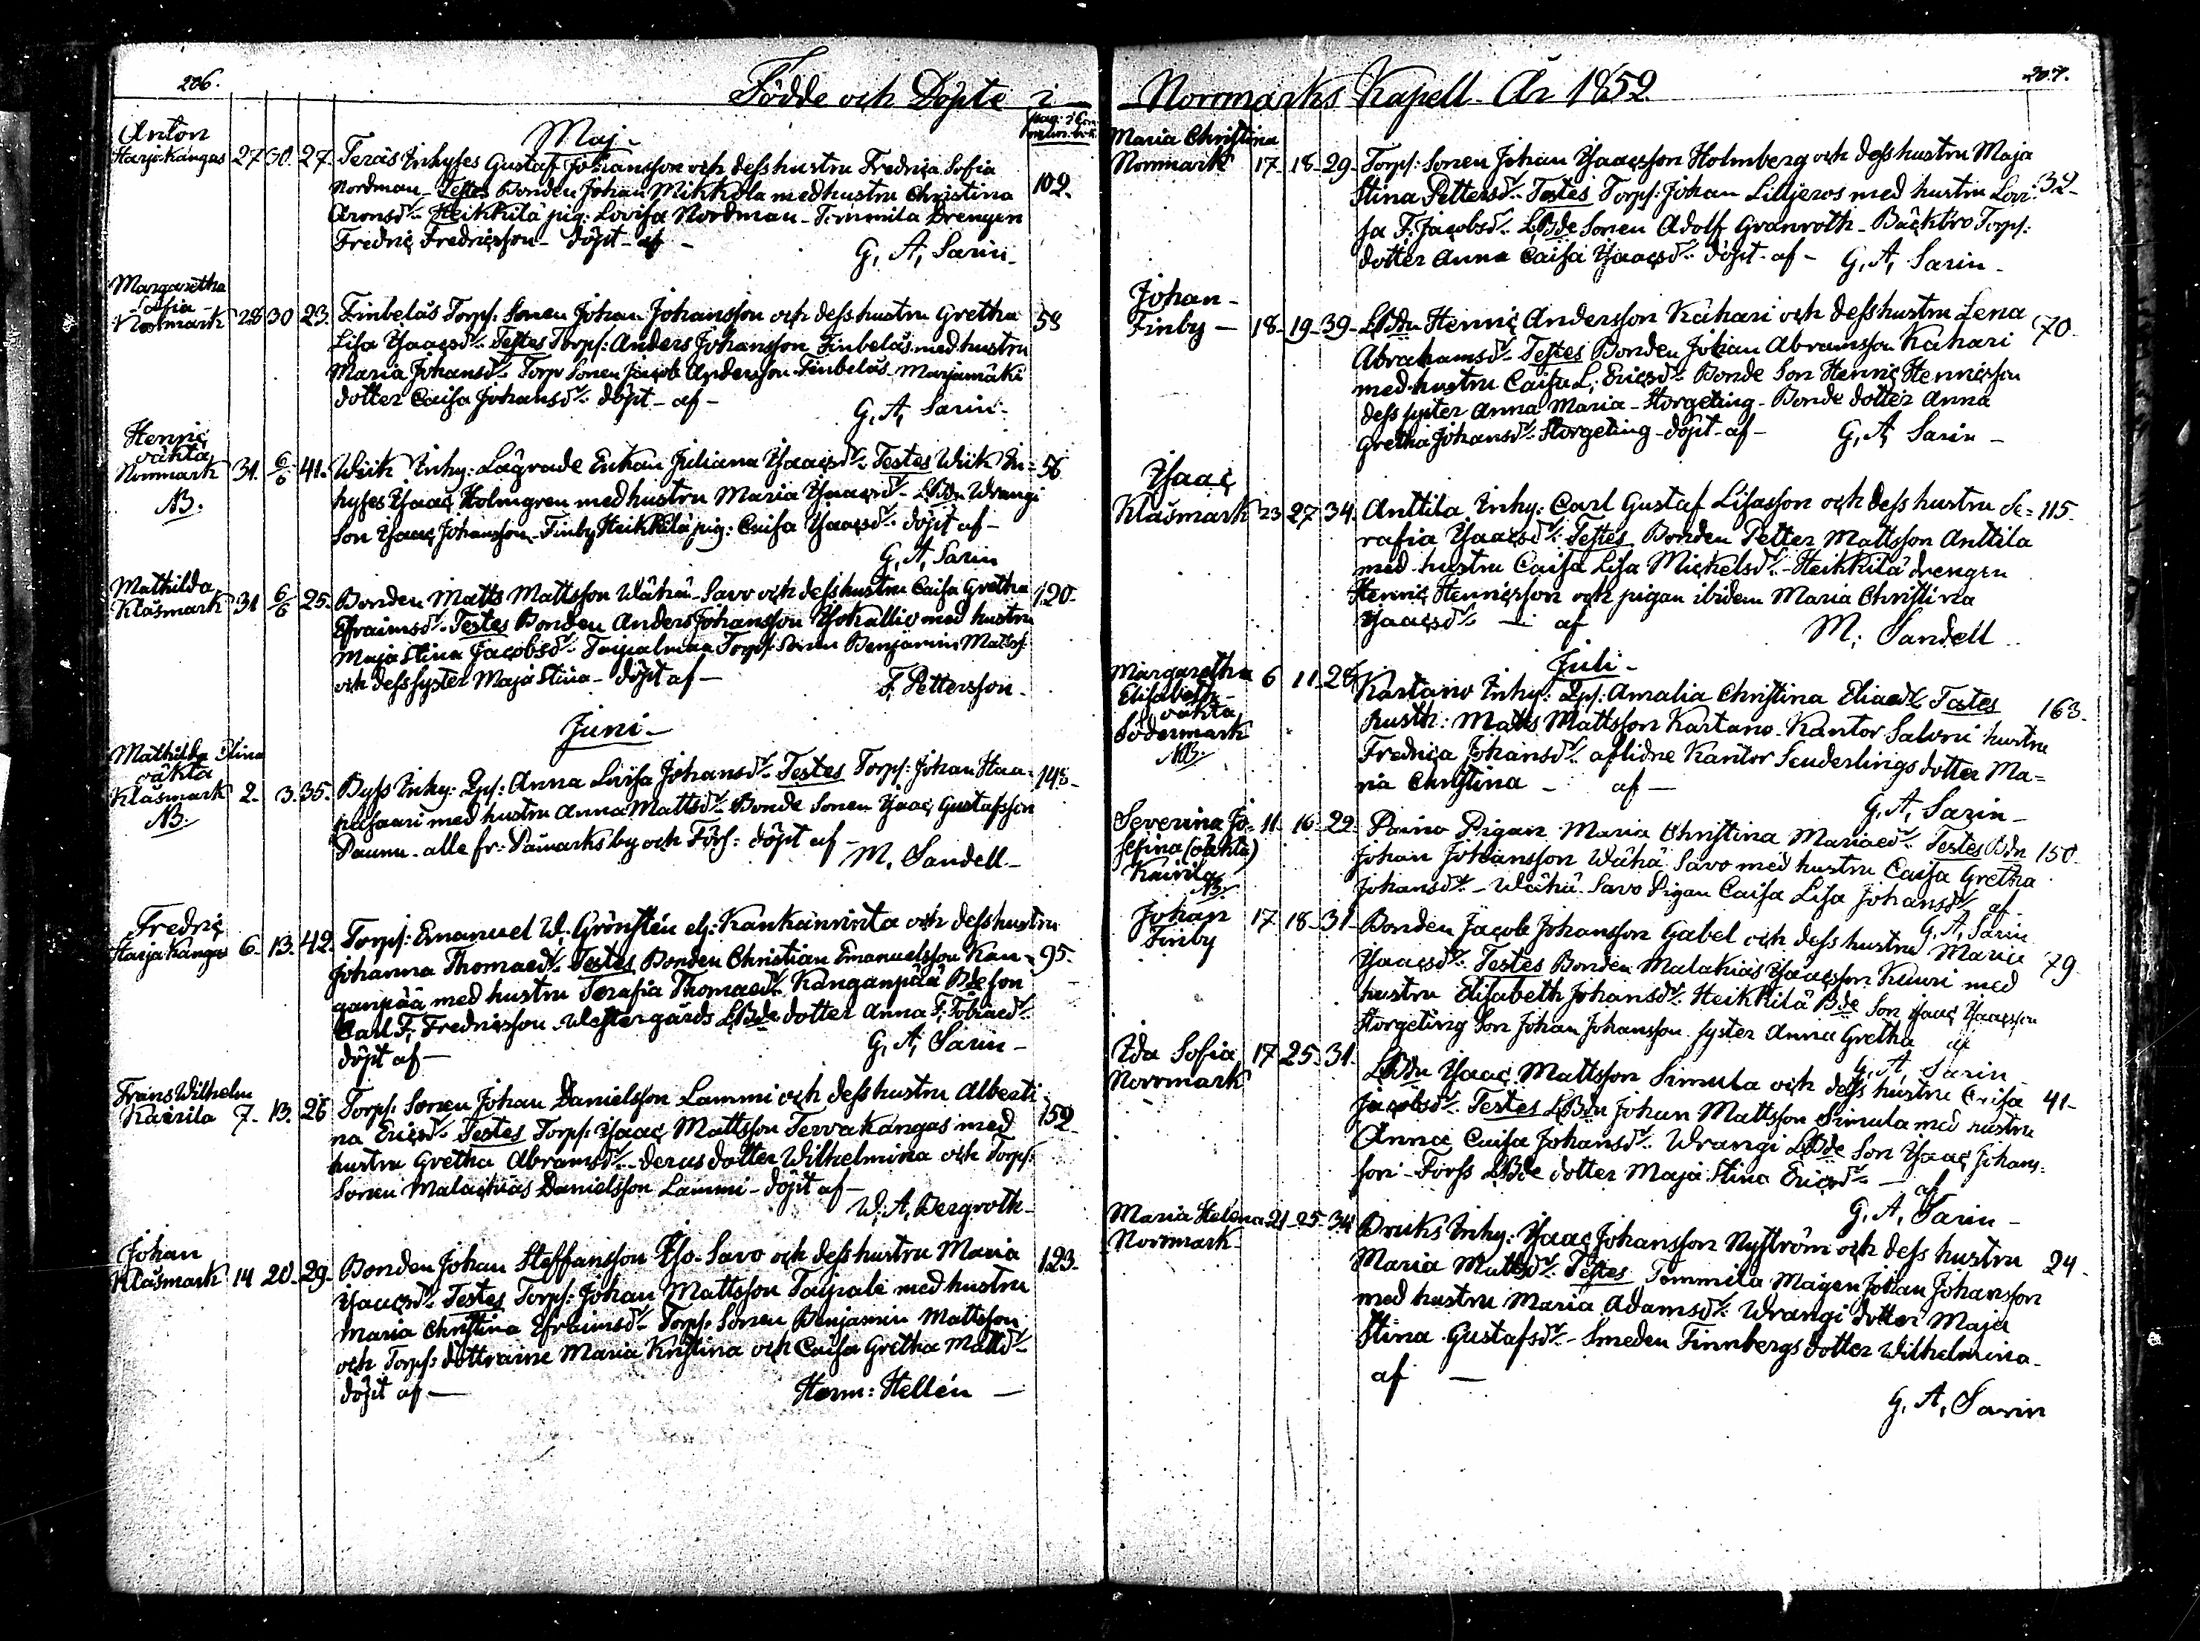 206.
Födde och Döpte i
Maj
Anton
Harjakangas 27 30. 27. Teräs Inhyses Gustaf Johansson och dess hustru Fredrica Sofia 102.
Nordman - Testes Bonden Johan Mikkola med hustru Christina
Aronsdr. Heikkilä pig: Lovisa Nordman - Timmila Drengen
Fredric Fredricsson - döpt - af -
G. A. Sarin -
Margaretha
Sofia -
Norrmark 28 30 23. Finbeläs Torp: Sonen Johan Johansson och dess hustru Gretha 58
Lisa Isaacsdr. Testes Torp: Anders Johansson Finbeläs med hustru
Maria Johansdr. Torp Sonen Jacob Andersson Finbeläs Marjamäki
dotter Caisa Johansdr. döpt - af -
G. A. Sarin -
Henric
oäkta
Norrmark 31. 6/6 41. Wiik Inhy: Lägrade Enkan Juliana Isaacsdr. Testes Wiik In= 56
NB.
hyses Isaac Holmgren med hustru Maria Isaacsdr - LBdn Wrangi
Son Isaac Johansson - Finby Heikkilä pig: Caisa Isaacsdr. döpt af -
G. A. Sarin
Mathilda
Klåsmark 31 6/6 25. Bonden Matts Mattsson Wähä-Savo och dess hustru Caisa Gretha 120.
Efraimsdr. Testes Bonden Anders Johansson Isokallio med hustru
Maja Stina Jacobsdr. Taipalmaa Torp: Sonen Benjamin Matts:
och dess syster Maja Stina - döpt af -
F. Pettersson -
Juni -
Mathilda Stina
oäkta
Klåsmark 2. 3. 35. Byss Inhy: Qps: Anna Lovisa Johansdr. Testes Torp: Johan Haa= 148.
NB.
pasaari med hustru Anna Mattsdr. Bonde Sonen Isaac Gustafsson
Paunu - alle fr: Påmarks by och Förs: döpt af -
M. Sandell -
Fredric
Harjakangas 6. 13. 42. Torp: Emanuel W. Grönstén elg: Kankänriita och dess hustru
Johanna Thomaedr. Testes Bonden Christian Emanuelsson Kan= 95.
ganpää med hustru Serafia Thomaedr. Kanganpää Bde son
Carl F. Fredricsson. Westergårds LBde dotter Anna F. Tobiaedr.
döpt af -
G. A. Sarin -
Frans Wilhelm
Kairila 7. 13. 26 Torp: Sonen Johan Danielsson Lammi och dess hustru Alberti= 152
na Ericsdr. Testes Torp: Isaac Mattsson Tervakangas med
hustru Gretha Abramsdr. deras dotter Wilhelmina och Torp:
Sonen Malachias Danielsson Lammi - döpt af -
W. A. Bergroth -
Johan
Klåsmark 14 20. 29. Bonden Johan Steffansson Iso-Savo och dess hustru Maria 123.
Isaacsdr. Testes Torp: Johan Mattsson Taipale med hustru
Maria Christina Efraimsdr. Torp: Sonen Benjamin Mattsson
och Torp: döttrarne Maria Kristina och Caisa Gretha Mattsdr.
döpt af -
Herm: Hellén -
Norrmarks Kapell År 1852.
207.
Maria Christina
Norrmark 17. 18. 29. Torp: Sonen Johan Isaacsson Holmberg och dess hustru Maja
Stina Pettersdr. Testes Torp: Johan Liljeros med hustru Lovi= 32.
sa F. Jacobsdr. LBde Sonen Adolf Granroth - Bäckbro Torp:
dotter Anna Caisa Isaacsdr. döpt - af - G. A. Sarin -
Johan -
Finby - 18. 19. 39. LBdn Henric Andersson Kahari och dess hustru Lena
Abrahamsdr. Testes Bonden Johan Abramsson Kahari 70.
med hustru Caisa L. Ericsdr. Bonde Son Henric Henricsson
dess syster Anna Maria - Storgeting - Bonde dotter Anna
Gretha Johansdr. Storgeting - döpt - af - G. A. Sarin -
Isaac
Klåsmark 23 27. 34. Anttila Inhy: Carl Gustaf Lisasson och dess hustru Se= 115.
rafia Isaacsdr. Testes Bonden Petter Mattsson Anttila
med hustru Caisa Lisa Mickelsdr. - Heikkilä drengen
Henric Henricsson och pigan ibidem Maria Christina
Isaacsdr. - af
M. Sandell
Juli -
Margaretha
Elisabeth -
oäkta
Södermark
NB. 6 11. 28 Kartano Inhy: Qps: Amalia Christina Eliaedr. Testes 163.
Husb: Matts Mattsson Kartano - Kantor Saloni hustru
Fredrica Johansdr. aflidne Kantor Senderlings dotter Ma=
ria Christina - af -
G. A. Sarin -
Severina Jo=
sefina (oäkta)
Kairila
NB. 11. 16. 22. Paino Pigan Maria Christina Mariaedr. Testes Bdn 150.
Johan Johansson Wähä-Savo med hustru Caisa Gretha
Johansdr. - Wähä-Savo Pigan Caisa Lisa Johansdr. af
G. A. Sarin
Johan
Finby 17 18. 31. Bonden Jacob Johansson Gabel och dess hustru Maria
Isaacsdr. Testes Bonden Malakias Isaacsson Knuuri med 79.
hustru Elisabeth Johansdr. Heikkilä Bde Son Isaac Isaacsson
Storgeting Son Johan Johansson syster Anna Gretha af
G. A. Sarin
Ida Sofia
Norrmark 17. 25. 31. LBdn Isaac Mattsson Simula och dess hustru Caisa 41.
Jacobsdr. Testes LBdn Johan Mattsson Simula med hustru
Anna Caisa Johansdr. Wrangi LBde Son Isaac Johans=
son - Forss LBde dotter Maja Stina Ericsdr. - af
G. A. Sarin -
Maria Helena
Norrmark 21. 25. 34. Bruks Inhy: Isaac Johansson Nyström och dess hustru
Maria Mattsdr. Testes Tommila Mågen Johan Johansson 24.
med hustru Maria Adamsdr. Wrangi dotter Maja
Stina Gustafsdr. - Smeden Finnbergs dotter Wilhelmina -
af -
G. A. Sarin